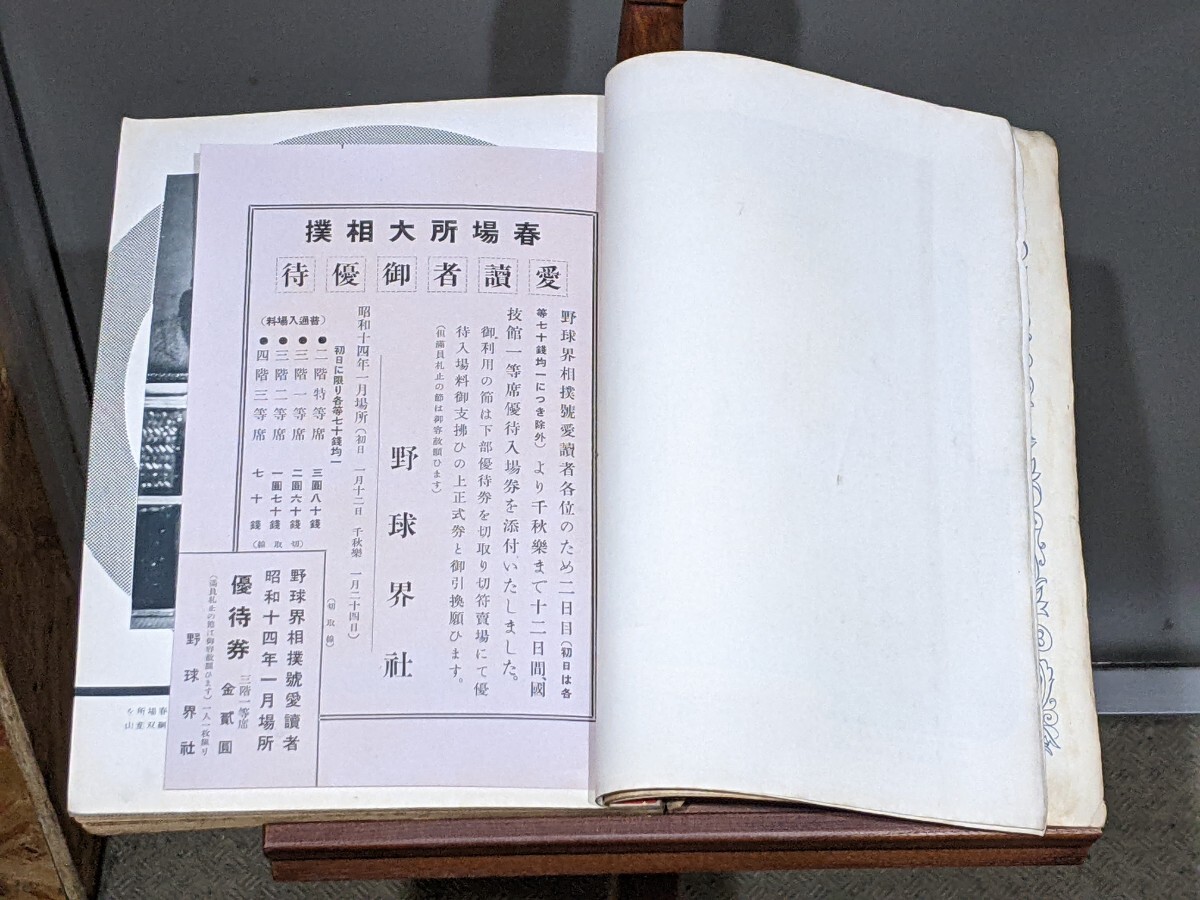 春場所大相撲
愛讀者御優待
野球界相撲號愛讀者各位のため二日目(初日は各
等七十錢均一につき除外)より千秋樂まで十二日間、國
技館一等席優待入場券を添付いたしました。
御利用の節は下部優待券を切取り切符賣場にて優
待入場料御支拂ひの上正式券と御引換願ひます。
(但滿員札止の節は御容赦願ひます)
野球界社
昭和十四年一月場所(初日 一月十二日 千秋樂 一月二十四日)
初日に限り各等七十錢均一
(普通入場料)
●二階特等席 三圓八十錢
●三階一等席 二圓六十錢
●三階二等席 一圓七十錢
●四階三等席 七十錢
(切取線)
(切取線)
野球界相撲號愛讀者
昭和十四年一月場所
優待券 三階一等席 金貳圓
(滿員札止の節は御容赦願ひます)一人一枚限り
野球界社